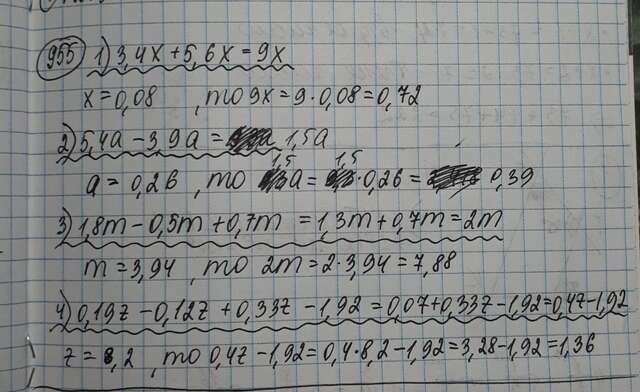 955 1) 3,4x + 5,6x = 9x
x = 0,08 , то 9x = 9 · 0,08 = 0,72
2) 5,4a - 3,9a = 1,5a
a = 0,26 , то 1,5a = 1,5 · 0,26 = 0,39
3) 1,8m - 0,5m + 0,7m = 1,3m + 0,7m = 2m
m = 3,94 , то 2m = 2 · 3,94 = 7,88
4) 0,19z - 0,12z + 0,33z - 1,92 = 0,07 + 0,33z - 1,92 = 0,4z - 1,92
z = 8,2 , то 0,4z - 1,92 = 0,4 · 8,2 - 1,92 = 3,28 - 1,92 = 1,36